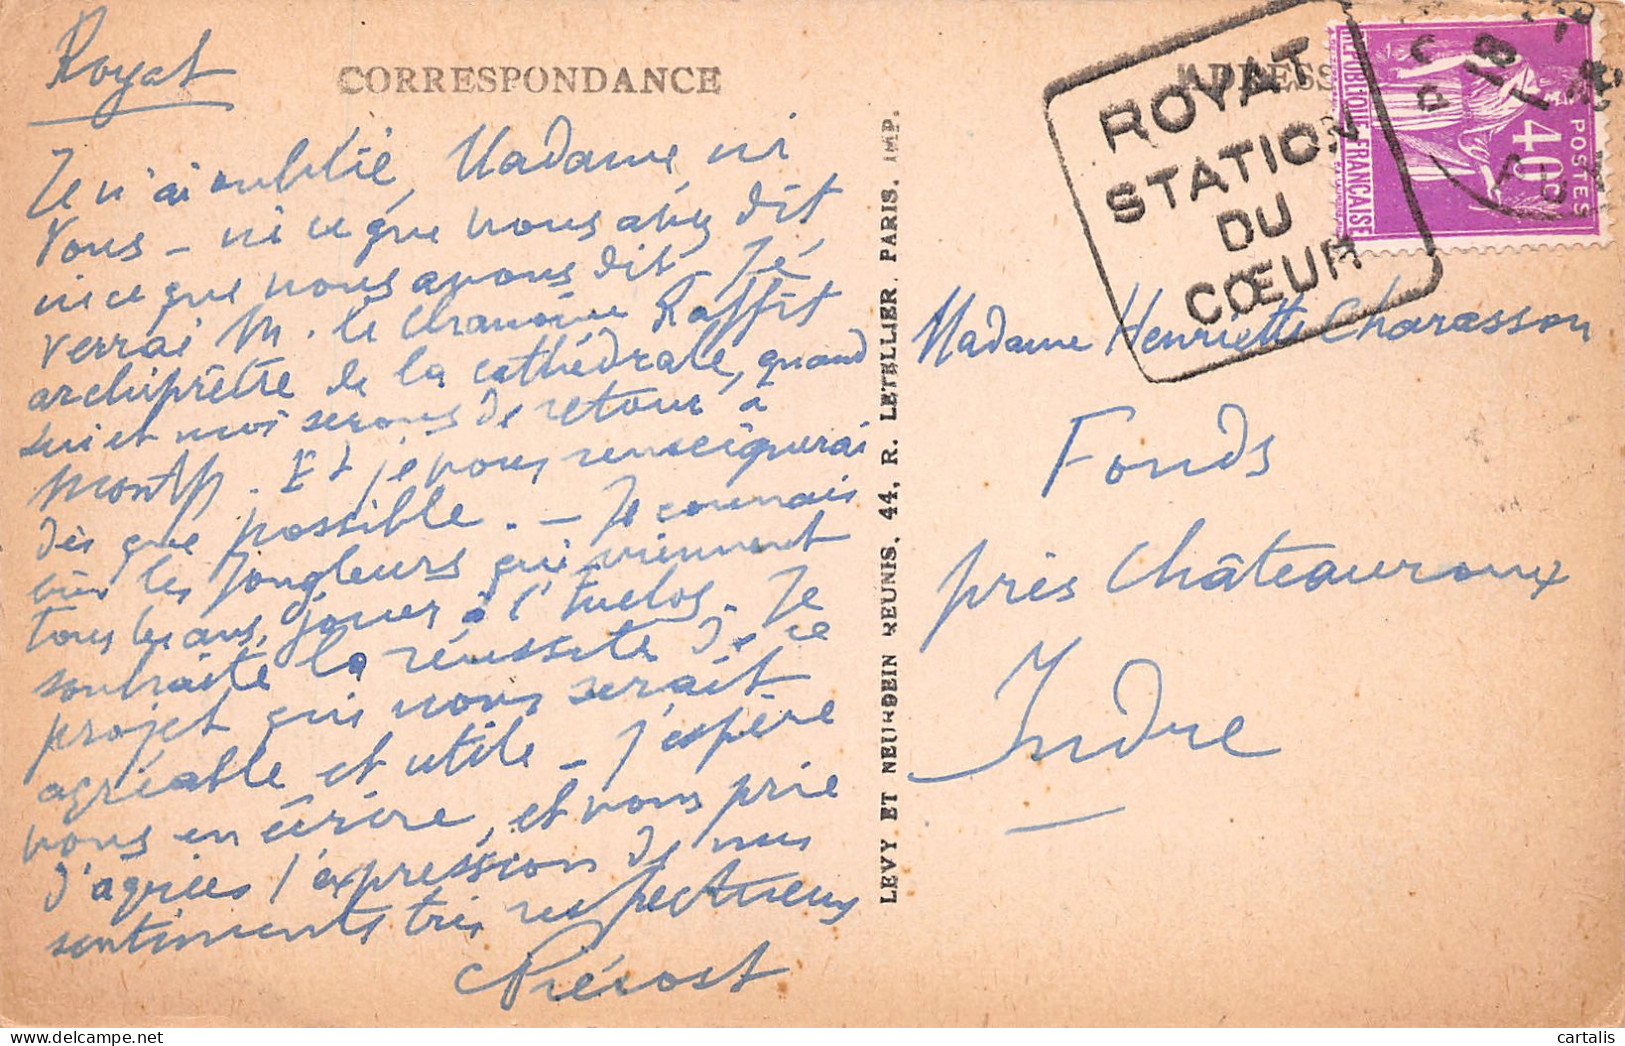 Royat
CORRESPONDANCE
Je n'ai oublié, Madame ni
Vous – ni ce que vous avez dit
ni ce que nous avons dit – Je
verrai M. le Chanoine Raffit
archiprêtre de la cathédrale, quand
lui et moi serons de retour à
Montp. Et je vous renseignerai
dès que possible. – Je connais
bien les Jongleurs qui viennent
tous les ans, jouer à l'Enclos. Je
souhaite la réussite de ce
projet qui nous serait
agréable et utile – J'espère
vous en écrire, et vous prie
d'agréer l'expression de mes
sentiments très respectueux
Prévost
LEVY ET NEURDEIN REUNIS, 44, R. LETELLIER, PARIS. IMP.
ADRESS
ROYAT
STATION
DU
CŒUR
REPUBLIQUE FRANÇAISE
POSTES
40c
18
1
Madame Henriette Charasson
Fonds
près Châteauroux
Indre
cartalis